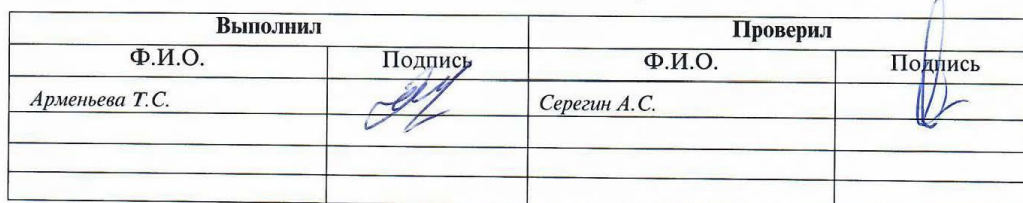 Выполнил Проверил
Ф.И.О. Подпись Ф.И.О. Подпись
Арменьева Т.С. Серегин А.С.